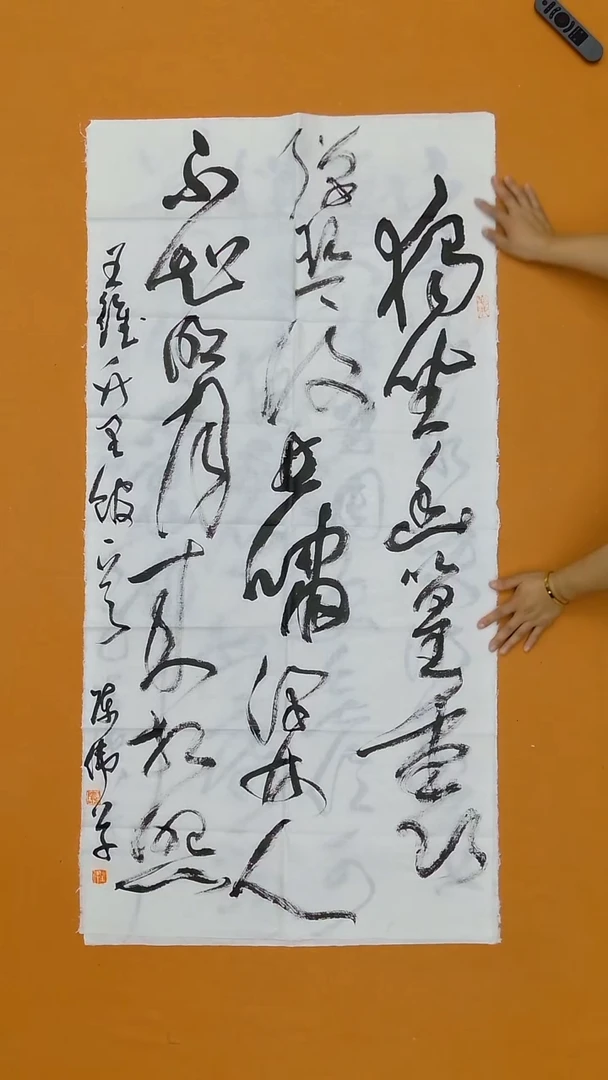 獨坐幽篁裏
彈琴復長嘯深林人
不知明月來相照
王維竹里館一首
陈伟